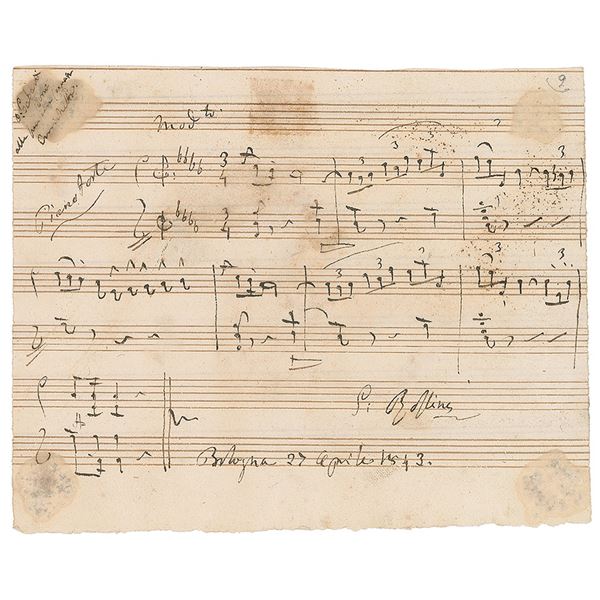 9
Mod to.
Pianoforte
3
4
3
4
3
3
3
3
3
3
3
3
3
G: Rossini
Bologna 27 Aprile 1843.